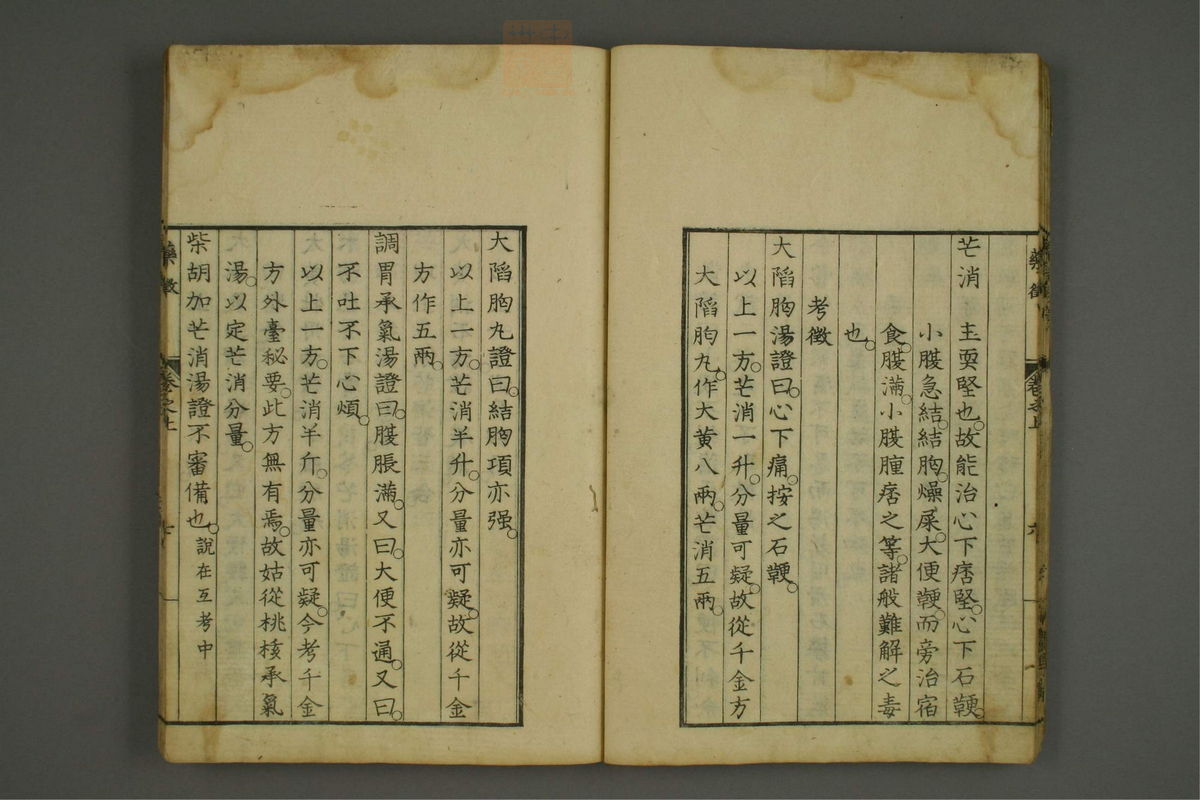 芒消　主耎堅也。故能治心下痞堅。心下石鞕。
小腹急結。結胸。燥屎。大便鞕。而旁治宿
食。腹滿。小腹腫痞之等。諸般難解之毒
也。
考徵
大陷胸湯證曰。心下痛。按之石鞕。
以上一方。芒消一升。分量可疑。故從千金方
大陷胸丸。作大黃八兩。芒消五兩。
大陷胸丸證曰。結胸項亦强。
以上一方。芒消半升。分量亦可疑。故從千金
方作五兩。
調胃承氣湯證曰。腹脹滿。又曰。大便不通。又曰。
不吐不下心煩。
以上一方。芒消半斤。分量亦可疑。今考千金
方外臺秘要。此方無有焉。故姑從桃核承氣
湯。以定芒消分量。
柴胡加芒消湯證不審備也。說在互考中
藥徵
卷之上
藥徵
卷之上